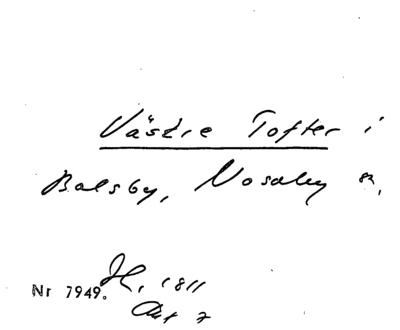 Västre Tofter i
Balsby, Nosaby sn,
Nr 7949. H, 1811
Akt 7